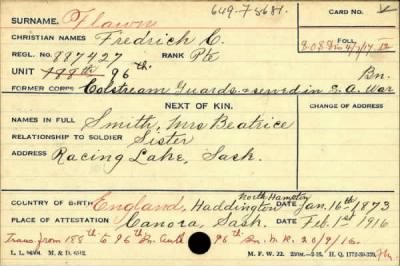 649-F-5681.
SURNAME. Flawn CARD NO.
CHRISTIAN NAMES Fredrick C. FOLL.
REGL. NO. 887427 RANK Pte
UNIT 188th 96th. Bn.
FORMER CORPS Colstream Guards - served in S.A. War
NEXT OF KIN. CHANGE OF ADDRESS
NAMES IN FULL Smith, Mrs Beatrice
RELATIONSHIP TO SOLDIER Sister
ADDRESS Racing Lake, Sask.
COUNTRY OF BIRTH England, Haddington North Hampton DATE Jan. 16th 1873
PLACE OF ATTESTATION Canora, Sask. DATE Feb. 1st 1916
Trans from 188th to 96th Bn. Auth 96th Bn. N.R. 20/9/16.
M. F. W. 22.